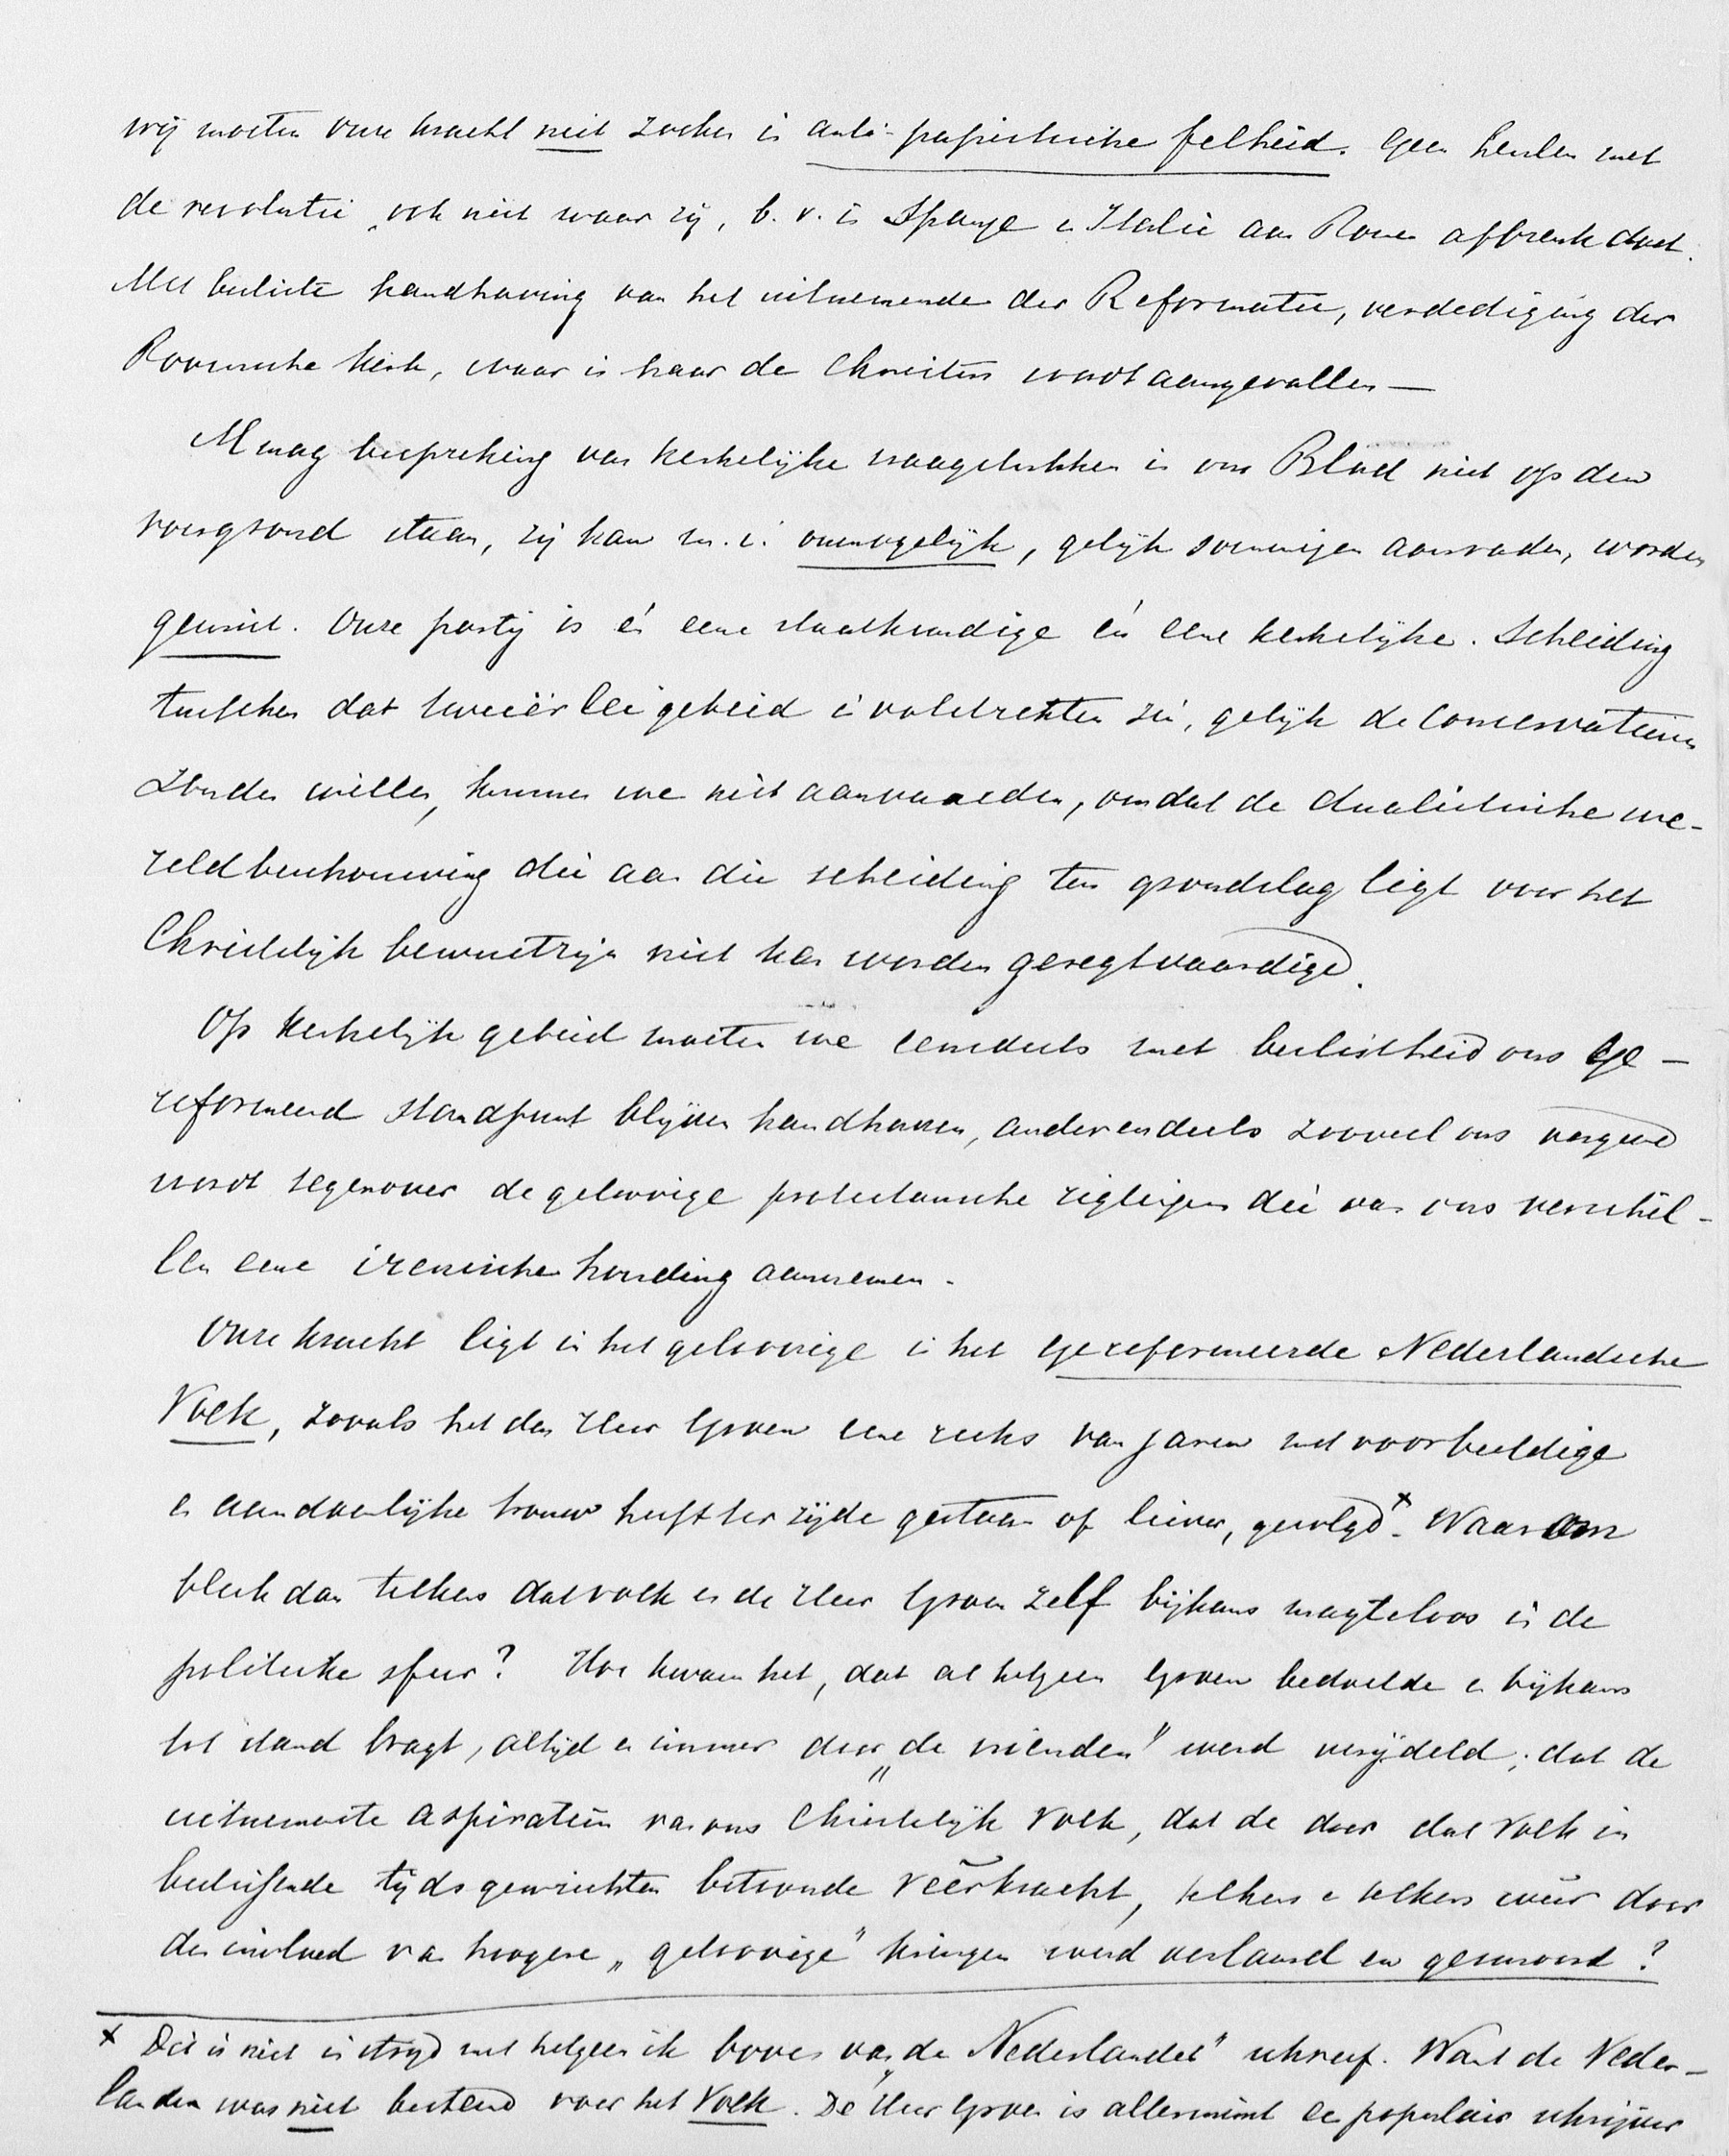 wij moeten onze kracht niet zoeken in anti-papistische felheid. Geen heulen met
de revolutie, ook niet waar zij, b.v. in Spanje en Italie aan Rome afbreuk doet.
Met besliste handhaving van het uitnemende der Reformatie, verdediging der
Roomsche Kerk, waar in haar de Christus wordt aangevallen —
M mag bespreking van kerkelijke vraagstukken in ons Blad niet op den
voorgrond staan, zij kan m.i. onmogelijk, gelijk sommigen aanraden, worden
gemist. Onze partij is én eene staatkundige én eene kerkelijke. Scheiding
tusschen dat tweeërlei gebied in volstrekten zin, gelijk de Conservatieven
zouden willen, kunnen we niet aanvaarden, omdat de dualistische we-
reldbeschouwing die aan die scheiding ten grondslag ligt voor het
Christelijk bewustzijn niet kan worden geregtvaardigd.
Op kerkelijk gebied moeten we eensdeels met beslistheid ons Ge-
reformeerd standpunt blijven handhaven, anderendeels zooveel ons vergund
wordt tegenover de geloovige protestantsche rigtingen die van ons verschil-
len eene irenische houding aannemen.
Onze kracht ligt in het geloovige in het Gereformeerde Nederlandsche
Volk, zooals het den Heer Groen eene reeks van jaren met voorbeeldige
en aandoenlijke trouw heeft ter zijde gestaan of liever, gevolgd x. Waarom
bleek dan telkens dat volk en de Heer Groen zelf bijkans magteloos in de
politieke sfeer? Hoe kwam het, dat al hetgeen Groen bedoelde en bijkans
tot stand bragt, altijd en immer door „de vrienden" werd verijdeld; dat de
uitnemendste aspiratiën van ons Christelijk Volk, dat de door dat Volk in
beslissende tijdsgewrichten betoonde veêrkracht, telkens en telkens weêr door
den invloed van hoogere „geloovige" kringen werd verlamd en gesmoord?
x Dit is niet in strijd met hetgeen ik boven van „de Nederlander" schreef. Want de Neder-
lander was niet bestemd voor het Volk. De Heer Groen is allerminst een populair schrijver